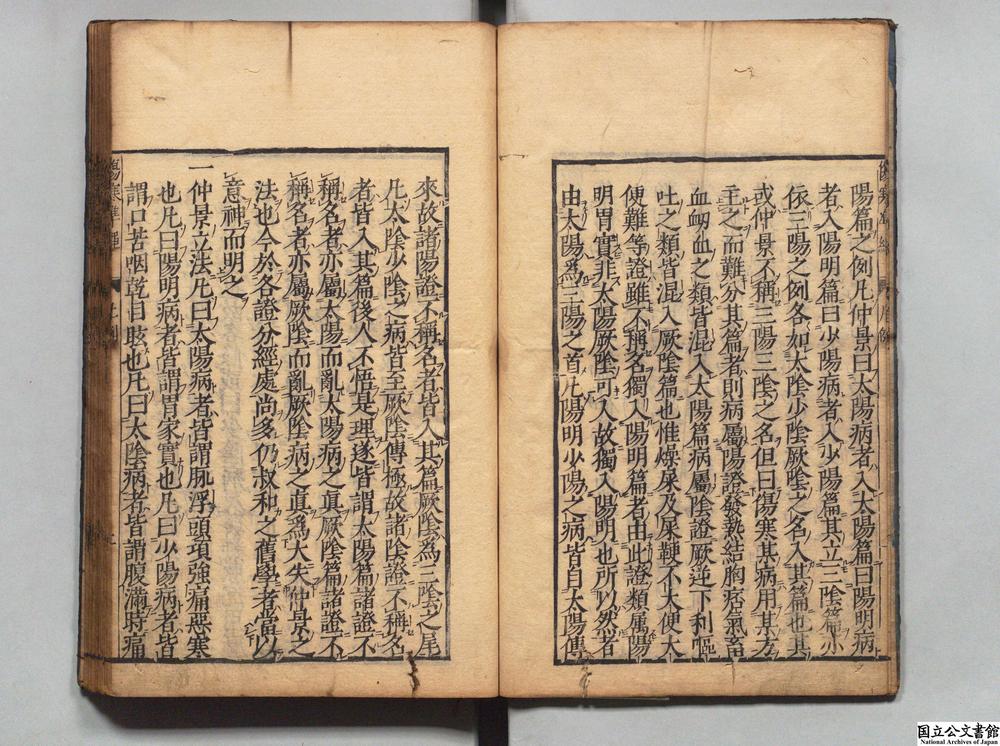 陽篇之例凡仲景曰太陽病者入太陽篇曰陽明病
者入陽明篇曰少陽病者入少陽篇其立三陰篇亦
依三陽之例各如太陰少陰厥陰之名入其篇也其
或仲景不稱三陽三陰之名但曰傷寒某病用某方
主之而難分其篇者則病屬陽證發熱結胸痞氣畜
血衂血之類皆混入太陽篇病屬陰證厥逆下利嘔
吐之類皆混入厥陰篇也惟燥屎及屎鞕不大便大
便難等證雖不稱名獨入陽明篇者由此證類屬陽
明胃實非太陽厥陰可入故獨入陽明也所以然者
由太陽爲三陽之首凡陽明少陽之病皆自太陽傳
來故諸陽證不稱名者皆入其篇厥陰爲三陰之尾
凡太陰少陰之病皆至厥陰傳極故諸陰證不稱名
者皆入其篇後人不悟是理遂皆謂太陽篇諸證不
稱名者亦屬太陽而亂太陽病之眞厥陰篇諸證不
稱名者亦屬厥陰而亂厥陰病之眞爲大失仲景之
法也今於各證分經處尚多仍叔和之舊學者當以
意神而明之
一仲景立法凡曰太陽病者皆謂脉浮頭項強痛惡寒
也凡曰陽明病者皆謂胃家實也凡曰少陽病者皆
謂口苦咽乾目眩也凡曰太陰病者皆謂腹滿時痛
国立公文書館
National Archives of Japan